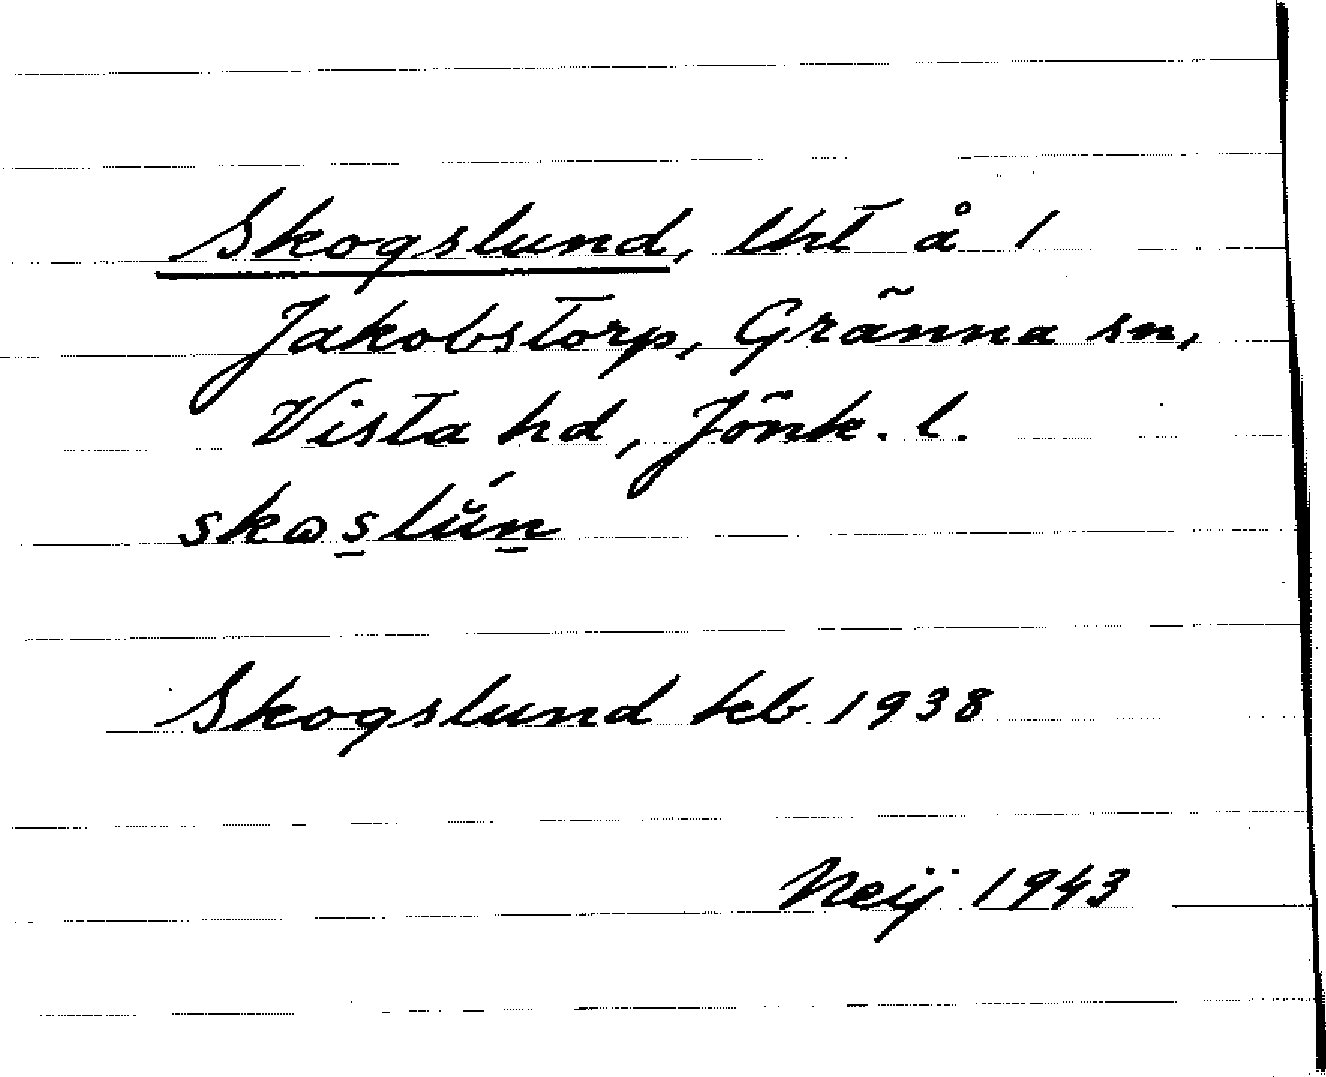 Skogslund, lht å 1
Jakobstorp, Gränna sn,
Vista hd, Jönk. l.
Skogslund kb 1938
Neij 1943